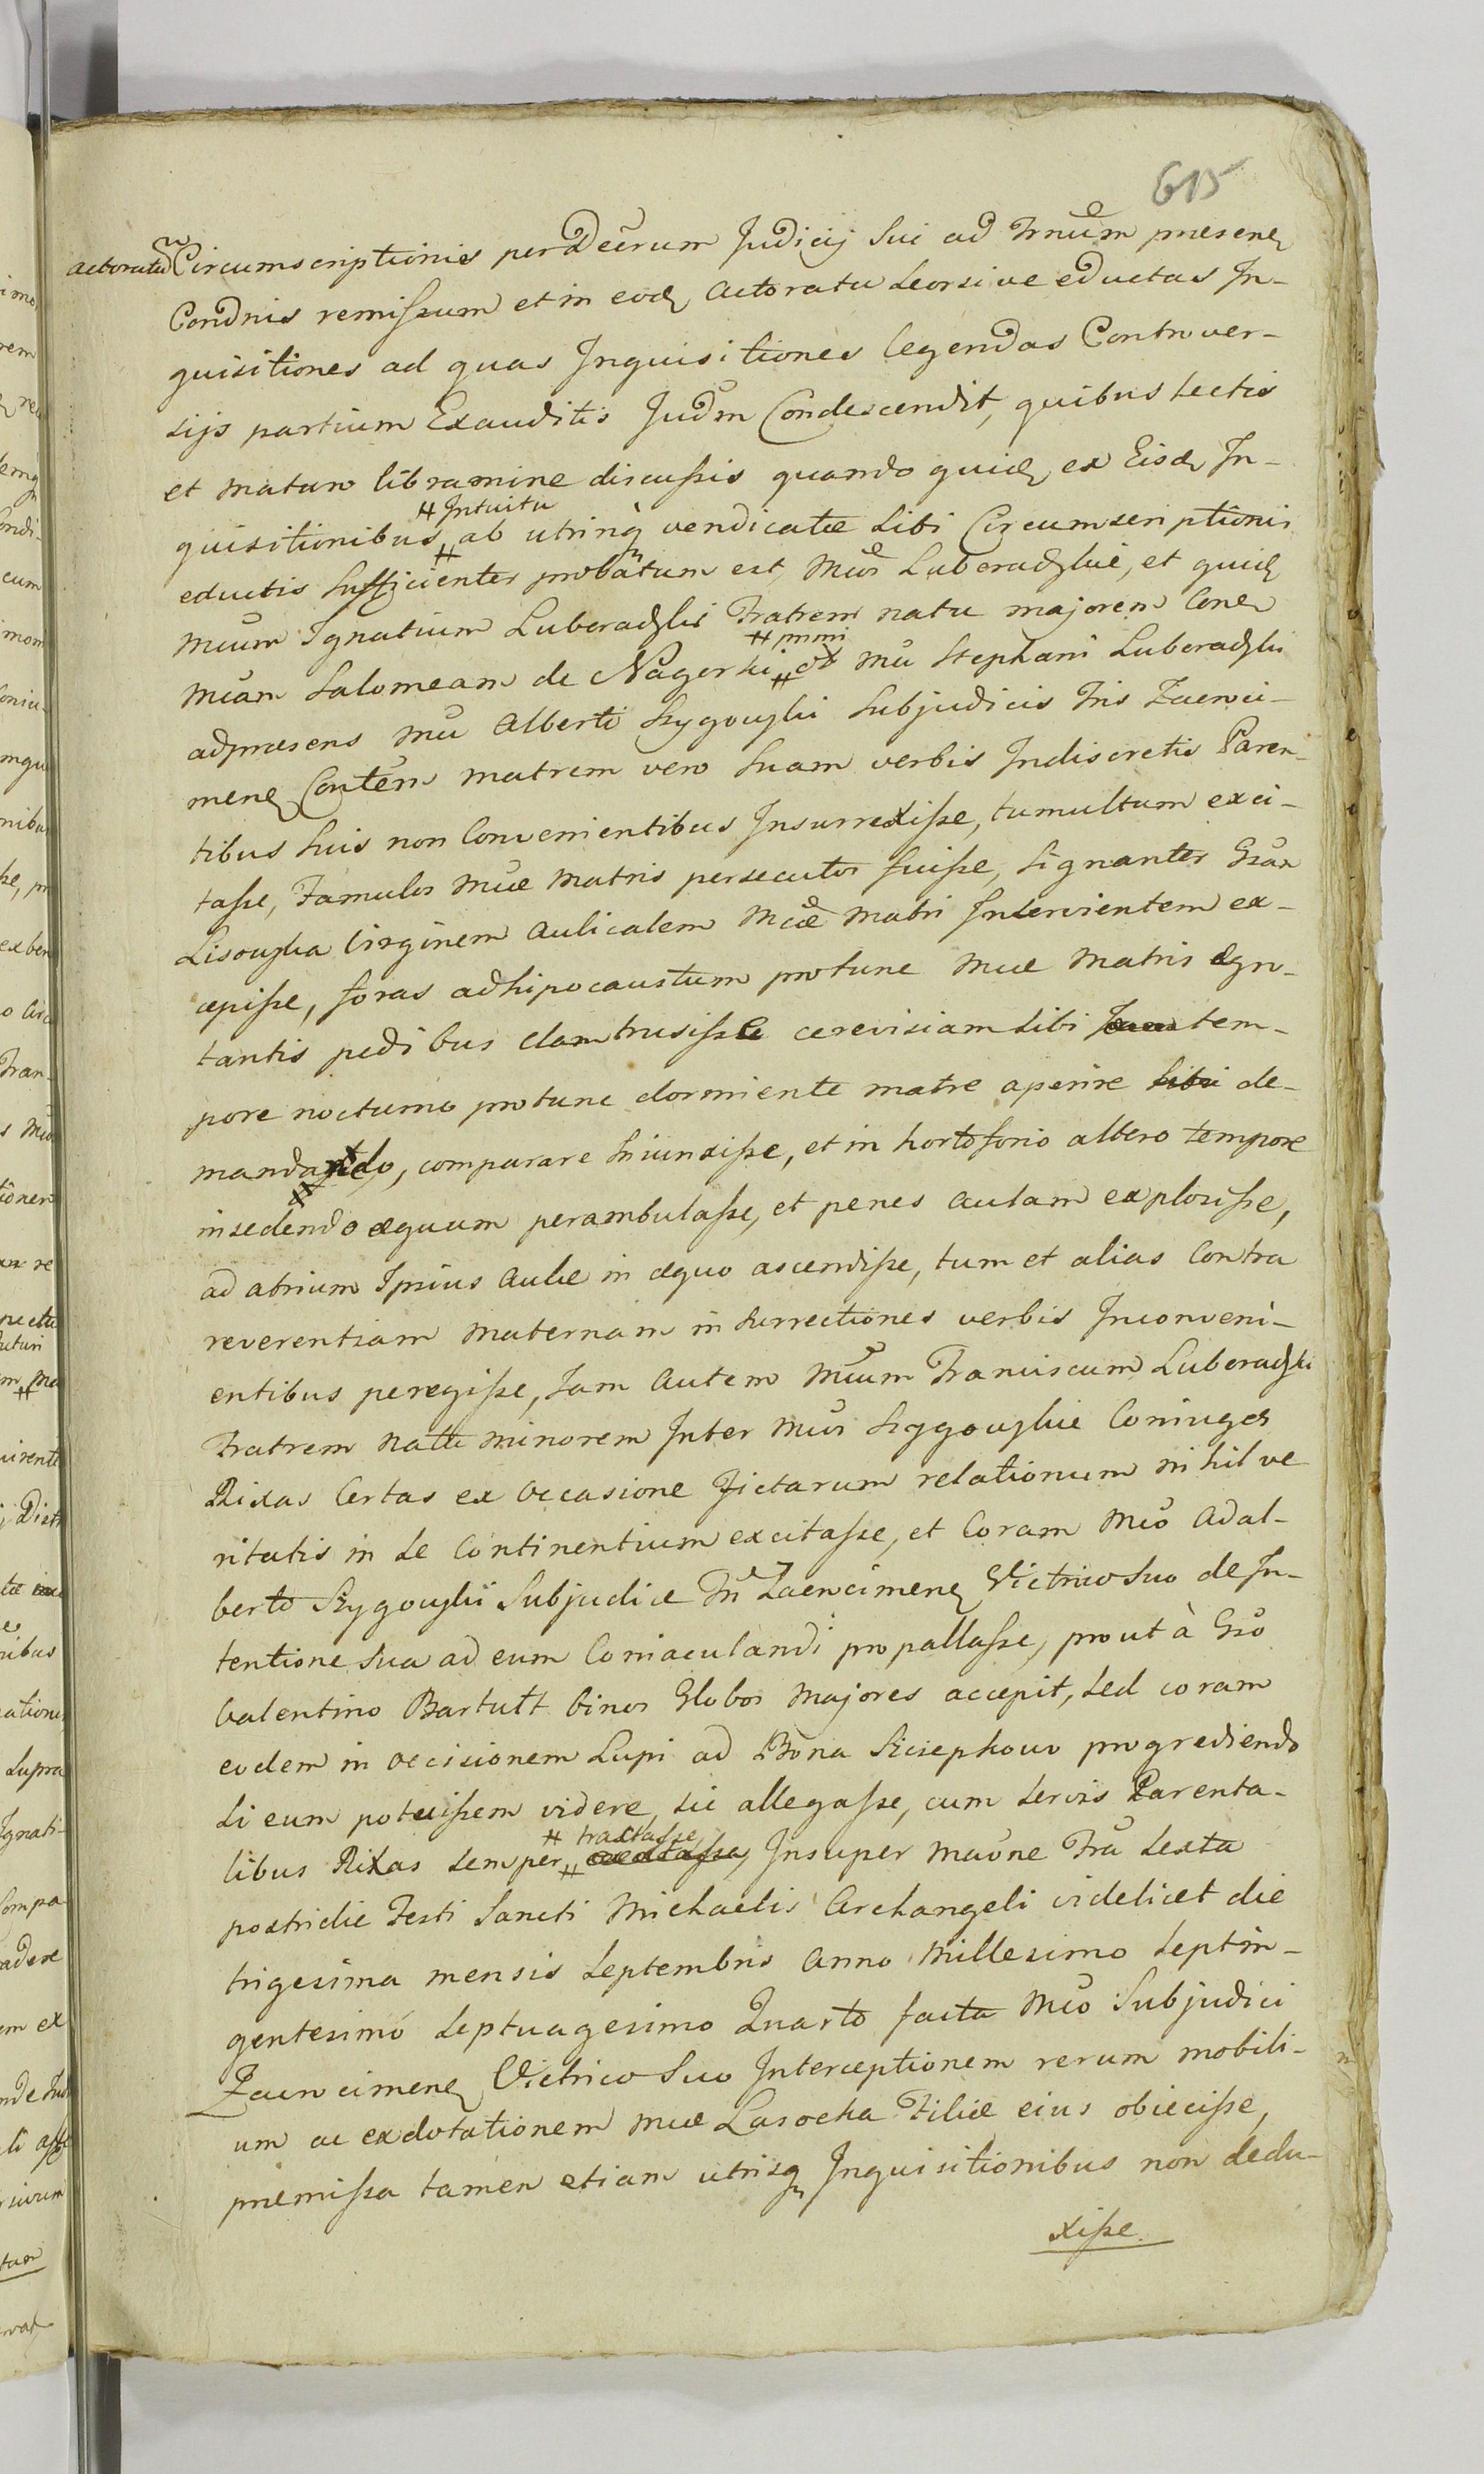 615
actoratu Circumscriptionis per Decrum Judicij Sui ad Trnum presenꝫ
Condnis remissum et in eodꝫ actoratu seorsive eductas In-
quisitiones ad quas Inquisitiones legendas Controver-
sijs partium Exauditis Judm Condescendit, quibus lectis
et maturo libramine discussis quando quidꝫ ex Eisdꝫ In-
# Intuitu
quisitionibus # ab utrinq vendicatæ sibi Circumscriptionis
eductis sufficienter probatum est, Mcos Luboradzkie, et quidꝫ
Mcum Ignatium Luboradzki Fratrem natu majorem Cone
# primi
Mcam Salomeam de Nagorki # ot Mci Stephani Luboradzki
adpræsens Mci Alberti Szygowski Subjudicis Tris Zawci-
menꝫ Contem matrem vero suam verbis Indiscretis Paren-
tibus suis non Convenientibus Insurrexisse, tumultum exci-
tasse, Famulos Mcæ Matris persecutos fuisse, signanter Gsam
Lisowska Virginem Aulicalem Mcæ Matri Inservientem ex-
cepisse, foras ad hipocaustum protunc Mcæ Matris ægro-
tantis pedibus clam trusisse cerevisiam sibi tem-
pore nocturno protunc dormiente matre aperire sibi de-
mandando, comparare Iniunxisse, et in horto forio altero tempore
insedendo æquum perambulasse, et penes aulam explosisse,
ad atrium Ipsius aulæ in æquo ascendisse, tum et alias Contra
reverentiam maternam insurrectiones verbis Inconveni-
entibus peregisse, Jam autem Mcum Franciscum Luboradzki
Fratrem natu minorem Inter Mcos Szygowskie Coniuges
Rixas Certas ex occasione fictarum relationum nihil ve
ritatis in se Continentium excitasse, et Coram Mco Adal-
berto Szygowski Subjudice Tri Zawcimenꝫ Victrico Suo de In-
tentione sua ad eum Coniaculandi propallasse, prout à Gso
Valentino Bartult binos Globos majores accepit, sed coram
eodem in occisionem Lupi ad Bona Szczepkowo progrediendo
si eum potuissem videre, sic allegasse, cum servis Parenta-
# tractasse
libus Rixas semper # excitasse, Insuper Mcone Fra sexta
postridie Festi Sancti Michaelis Archangeli videlicet die
trigesima mensis Septembris Anno Millesimo Septin-
gentesimo Septuagesimo Quarto facta Mco Subjudici
Zawcimenꝫ Victrico Suo Interceptionem rerum mobili-
um ac exdotationem Mcæ Lasocka Filiæ eius obiecisse,
premissa tamen etiam utrisq Inquisitionibus non dedu-
xisse.